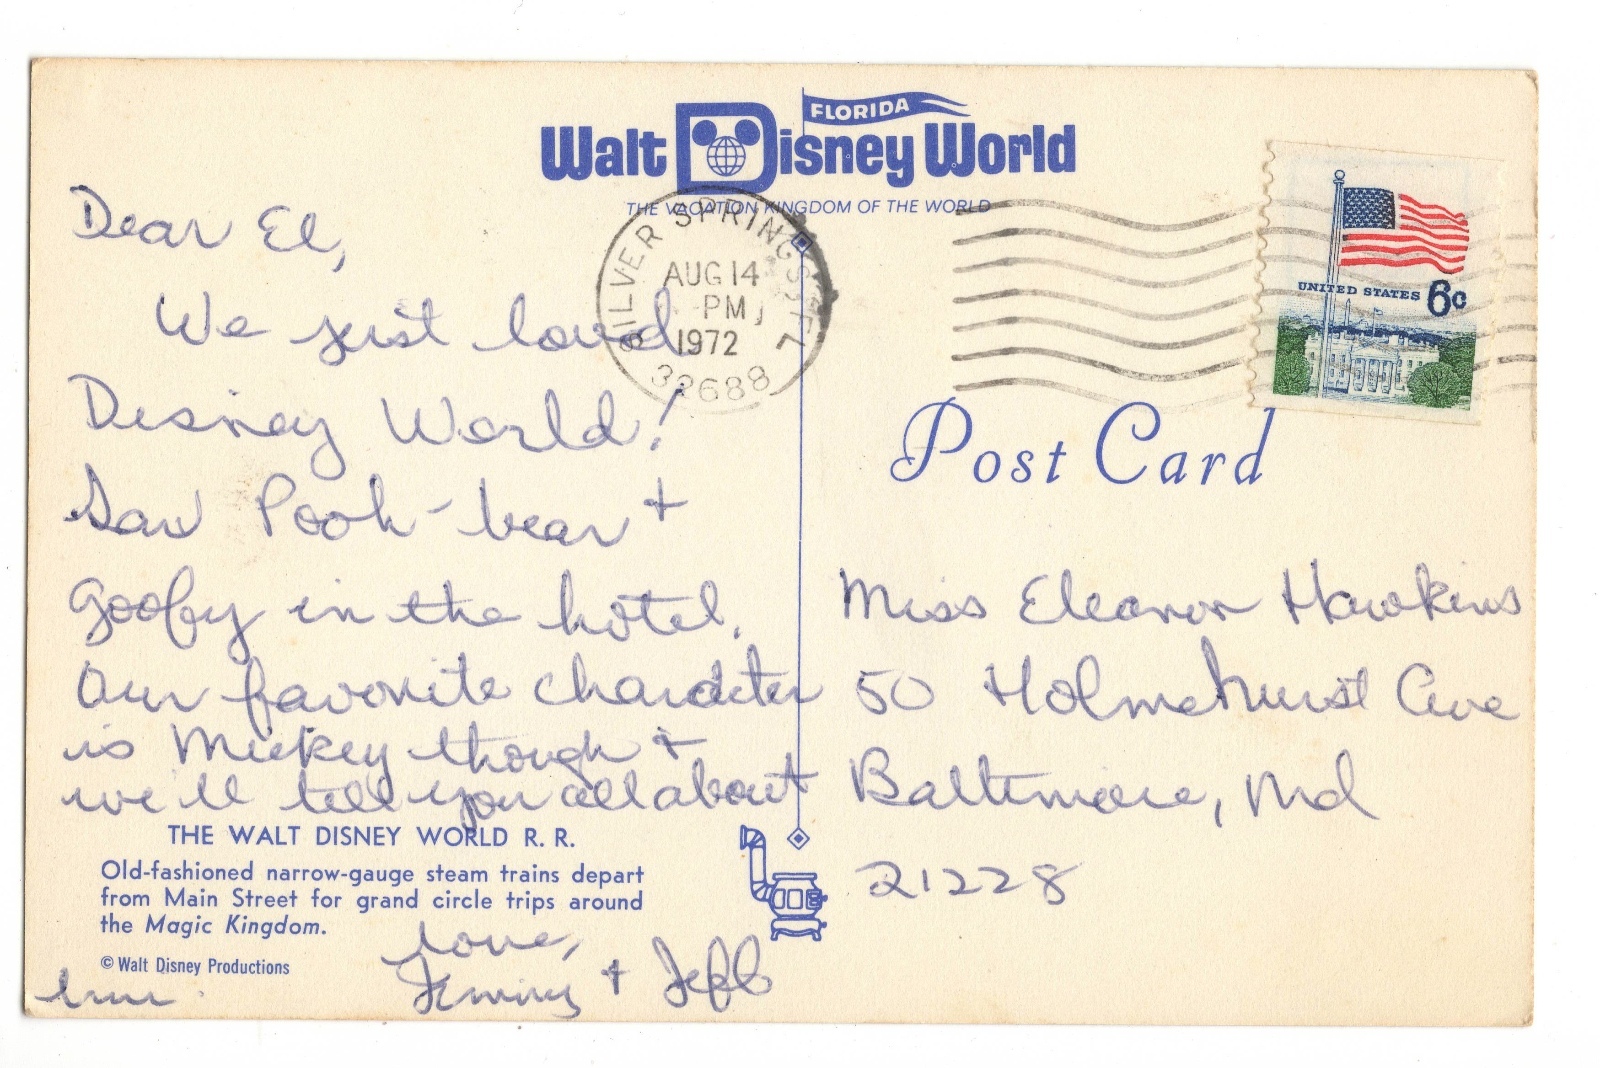 FLORIDA
Walt Disney World
THE VACATION KINGDOM OF THE WORLD
SILVER SPRINGS, FL
AUG 14
PM
1972
32688
UNITED STATES 6c
Post Card
Dear El,
We just loved
Disney World!
Saw Pooh-bear +
Goofy in the hotel.
Our favorite character
is Mickey though +
we'll tell you all about
him.
Love,
+ Jeff
THE WALT DISNEY WORLD R. R.
Old-fashioned narrow-gauge steam trains depart
from Main Street for grand circle trips around
the Magic Kingdom.
© Walt Disney Productions
Miss Eleanor Hawkins
50 Holmehurst Ave
Baltimore, Md
21228